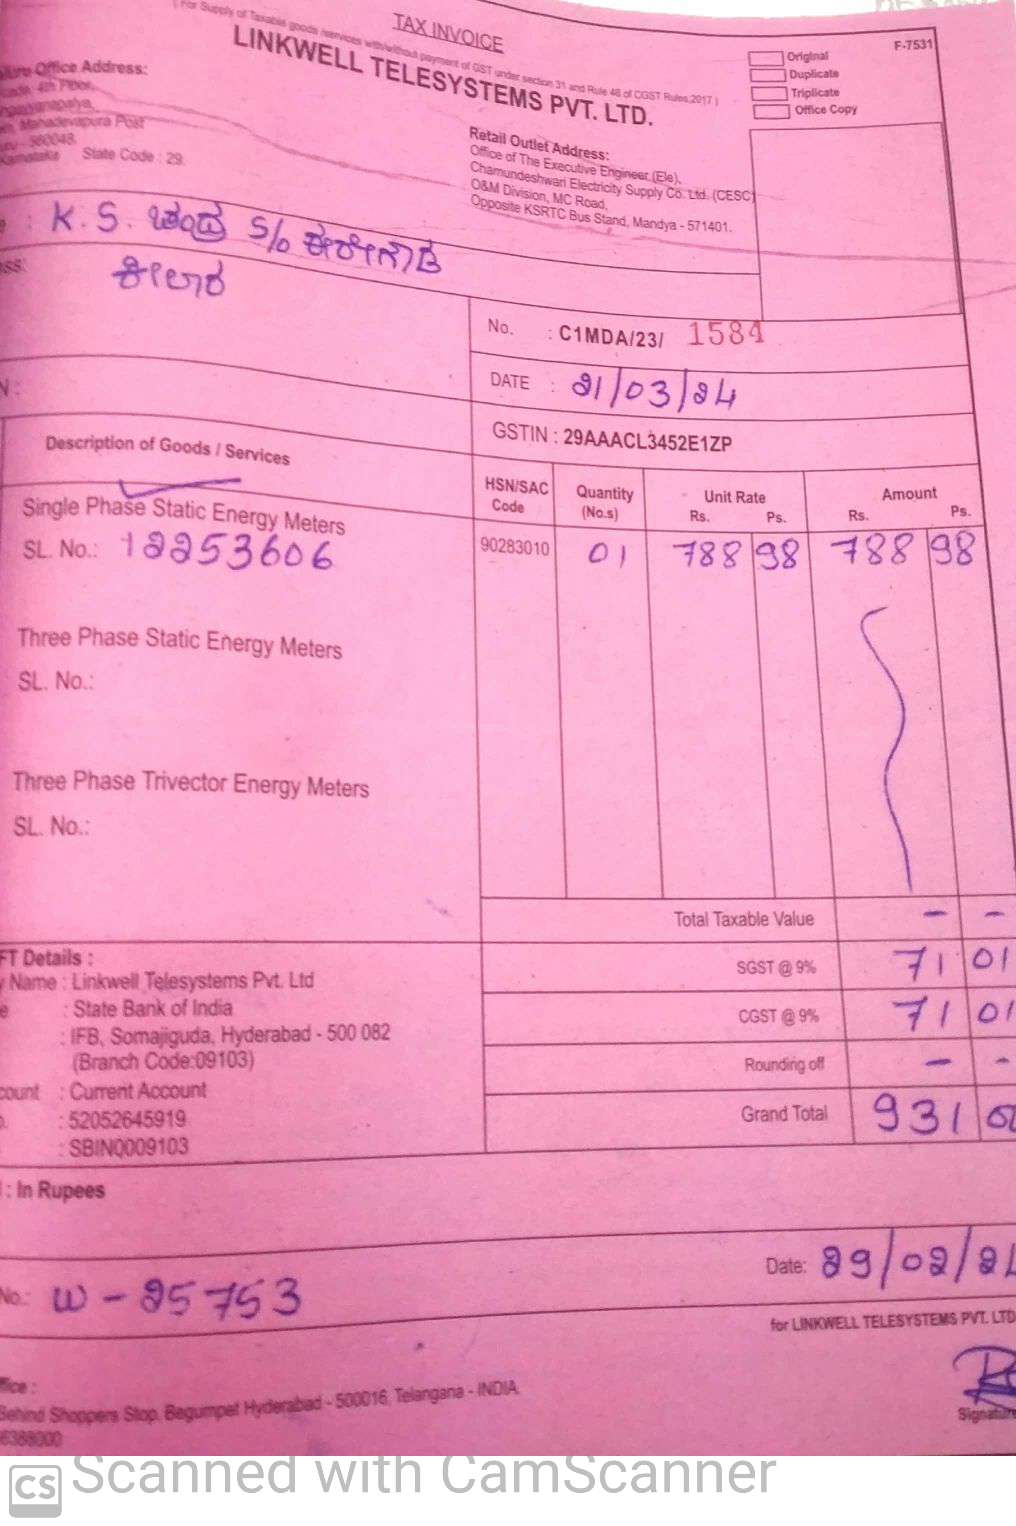 TAX INVOICE
(For Supply of Taxable goods /services with/without payment of GST under section 31 and Rule 48 of CGST Rules,2017)
LINKWELL TELESYSTEMS PVT. LTD.
F-7531
Original
Duplicate
Triplicate
Office Copy
Office Address:
4th Floor,
Mahadevapura Post
560048.
Karnataka State Code : 29
Retail Outlet Address:
Office of The Executive Engineer (Ele),
Chamundeshwari Electricity Supply Co. Ltd. (CESC)
O&M Division, MC Road,
Opposite KSRTC Bus Stand, Mandya - 571401.
: K. S. ಚಂದ್ರ S/o
ಕೀಲಾರ
No. : C1MDA/23/ 1584
DATE : 21/03/24
GSTIN : 29AAACL3452E1ZP
Description of Goods / Services HSN/SAC Code Quantity (No.s) Unit Rate Rs. Ps. Amount Rs. Ps.
Single Phase Static Energy Meters
SL. No.: 12253606 90283010 01 788 98 788 98
Three Phase Static Energy Meters
SL. No.:
Three Phase Trivector Energy Meters
SL. No.:
Total Taxable Value - -
SGST @ 9% 71 01
CGST @ 9% 71 01
Rounding off - -
Grand Total 931 00
FT Details :
Name : Linkwell Telesystems Pvt. Ltd
: State Bank of India
: IFB, Somajiguda, Hyderabad - 500 082
(Branch Code:09103)
count : Current Account
: 52052645919
: SBIN0009103
: In Rupees
No.: W - 25753
Date: 29/02/24
for LINKWELL TELESYSTEMS PVT. LTD
ffice :
Behind Shoppers Stop, Begumpet Hyderabad - 500016, Telangana - INDIA.
6388000
Signature
CS Scanned with CamScanner